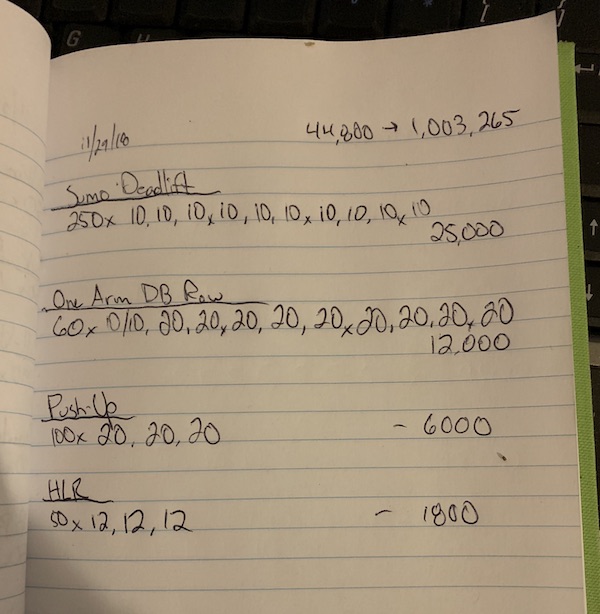 11/29/18
44,800 → 1,003,265
Sumo Deadlift
250x 10, 10, 10x10, 10, 10x10, 10, 10x10
25,000
One Arm DB Row
60x 10/10, 20, 20x20, 20, 20x20, 20, 20x20
12,000
Push-Up
100x 20, 20, 20 - 6000
HLR
50x12, 12, 12 - 1800